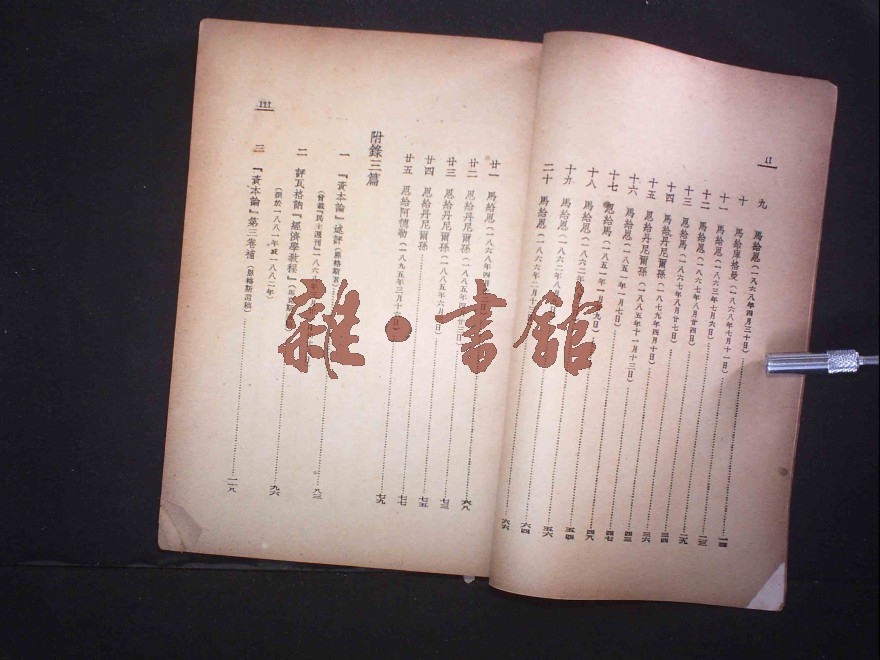 II
九 馬給恩(一八六八年四月三十日)
十 馬給庫格曼(一八六八年七月十一日)
十一 馬給恩(一八六三年七月六日)
十二 馬給恩(一八六七年八月廿四日)
十三 恩給馬(一八六七年八月廿七日)
十四 馬給丹尼爾孫(一八七九年四月十日)
十五 恩給丹尼爾孫(一八八五年十一月十三日)
十六 馬給恩(一八五一年一月七日)
十七 恩給馬(一八五一年一月
十八 馬給恩(一八六二年八月
十九 馬給恩(一八六二年八月
二十 馬給恩(一八六六年二月
一四
二三
二九
三四
三六
四三
四七
四八
五四
五六
六四
六六
III
廿一 馬給恩(一八六八年四月
廿二 恩給丹尼爾孫(一八八五年四月廿三日)
廿三 恩給丹尼爾孫(一八八五年六月
廿四 恩給丹尼爾孫
廿五 恩給阿德勒(一八九五年三月十六日)
六八
七三
七五
七七
附錄三篇
七九
一 『資本論』述評(恩格斯著)
(曾載『民主週刊』一八六八年
八三
二 評瓦格納『經濟學教程』
(撰於一八八一年或一八八二年)
九六
三 『資本論』第三卷補(恩格斯遺稿)
一一八
雜·書館